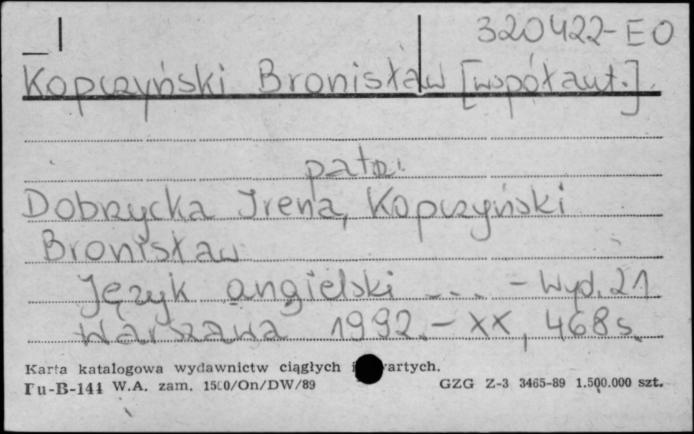 320422-EO
Kopczyński Bronisław [współaut.]
patrz:
Dobrzycka Irena, Kopczyński
Bronisław
Język angielski ... - Wyd. 21
Warszawa 1992. - XX, 468 s.
Karta katalogowa wydawnictw ciągłych i zwartych.
Pu-B-144 W.A. zam. 1500/On/DW/89 GZG Z-3 3465-89 1.500.000 szt.